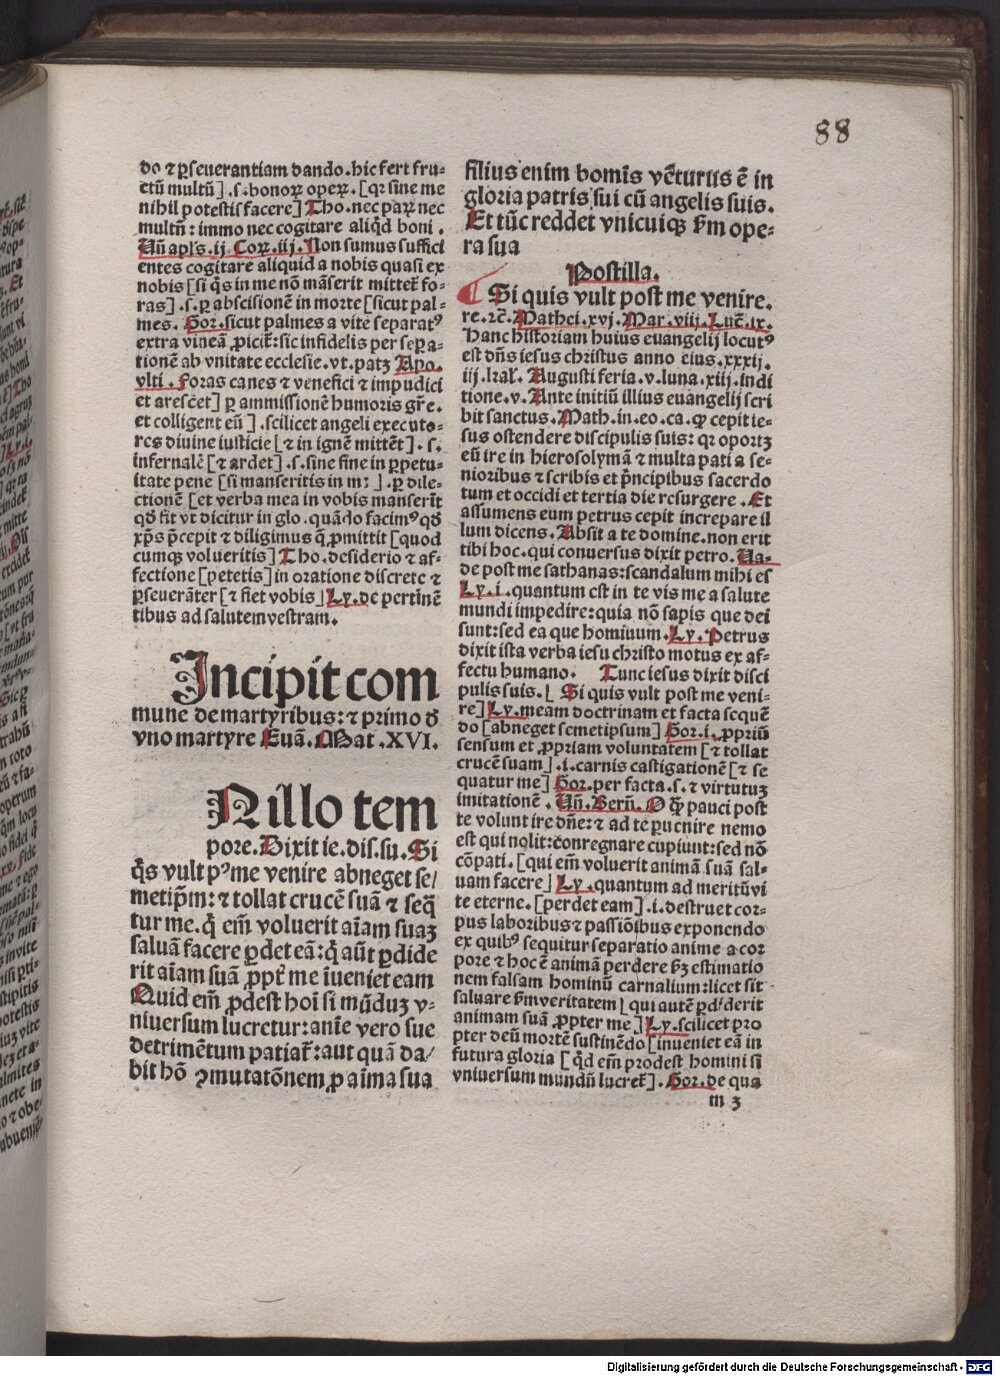 88
do ⁊ ꝑseuerantiam dando. hic fert fru-
ctū multū] .s. honoꝝ opeꝝ. [qꝛ sine me
nihil potestis facere] Tho. nec paꝝ nec
multū: immo nec cogitare aliqͥd boni.
Uñ apl's. ij Coꝝ. iij. Non sumus suffici
entes cogitare aliquid a nobis quasi ex
nobis [si qͥs in me nō māserit mittet̃ fo-
ras] .s. ꝑ abscisionē in morte [sicut pal-
mes. Gor. sicut palmes a vite separatꝰ
extra vineā ꝓicit̃: sic infidelis per sepa-
tionē ab vnitate ecclesie. vt. patꝫ Apo.
vlti. Foras canes ⁊ venefici ⁊ impudici
et arescet] ꝑ ammissionē humoris gr̄e.
et colligent eū] .scilicet angeli executo-
res diuine iusticie [⁊ in ignē mittēt] .s.
infernalē [⁊ ardet] .s. sine fine in ꝑpetu-
itate pene [si manseritis in m: ] .ꝑ dile-
ctionē [et verba mea in vobis manserīt
qd̄ fit vt dicitur in glo. quādo facimꝰ qd̄
xp̄s p̄cepit ⁊ diligimus q̄ ꝓmittit [quod
cumqꝫ volueritis] Tho. desiderio ⁊ af-
fectione [petetis] in oratione discrete ⁊
ꝑseuerāter [⁊ fiet vobis] Ly. de pertinē
tibus ad salutem vestram.
Incipit com
mune de martyribus: ⁊ primo d̄
vno martyre Euā. Mat .XVI.
N illo tem
pore. Dixit ie. dis. su. Si
qͥs vult pꝰ me venire abneget se/
metip̄m: ⁊ tollat crucē suā ⁊ seq̄
tur me. qͥ em̄ voluerit aīam suaꝫ
saluā facere ꝑdet eā: qͥ aūt ꝑdide
rit aīam suā ꝓpt̃ me īueniet eam
Quid em̄ ꝓdest hoī si mūduꝫ v-
niuersum lucretur: anīe vero sue
detrimētum patiat̃: aut quā da/
bit hō ꝯmutatōnem ꝓ aīma sua
filius enim homīs vēturus ē in
gloria patris sui cū angelis suis.
Et tūc reddet vnicuiqꝫ ẜm ope-
ra sua
Postilla.
Si quis vult post me venire.
re. ꝛc̄. Mathei. xvj. Mar. viij. Luc̄. ix.
Hanc historiam huius euangelij locutꝰ
est dn̄s iesus christus anno eius. xxxij.
iij. kal'. Augusti feria. v. luna. xiij. indi
tione. v. Ante initiū illius euangelij scri
bit sanctus. Math. in. eo. ca. ꝙ cepit ie-
sus ostendere discipulis suis: qꝛ oportꝫ
eū ire in hierosolymā ⁊ multa pati a se-
nioribus ⁊ scribis et p̄ncipibus sacerdo
tum et occidi et tertia die resurgere. Et
assumens eum petrus cepit increpare il
lum dicens. Absit a te domine. non erit
tibi hoc. qui conuersus dixit petro. Ua-
de post me sathanas: scandalum mihi es
Ly. i. quantum est in te vis me a salute
mundi impedire: quia nō sapis que dei
sunt: sed ea que hominum. Ly. Petrus
dixit ista verba iesu christo motus ex af-
fectu humano. Tunc iesus dixit disci
pulis suis. [ Si quis vult post me veni-
re] Ly. meam doctrinam et facta sequē
do [abneget semetipsum] Gor. i. ꝓpriū
sensum et ꝓpriam voluntatem [⁊ tollat
crucē suam] .i. carnis castigationē [⁊ se
quatur me] Gor. per facta. s. ⁊ virtutuꝫ
imitationē. Uñ. Bern̄. O qͣꝫ pauci post
te volunt ire dn̄e: ⁊ ad te ꝑuenire nemo
est qui nolit: conregnare cupiunt: sed nō
cōpati. [qui em̄ voluerit animā suā sal-
uam facere] Ly. quantum ad meritū vi
te eterne. [perdet eam] .i. destruet cor-
pus laboribus ⁊ passiōibus exponendo
ex quibꝰ sequitur separatio anime a cor
pore ⁊ hoc ē animā perdere ẜꝫ estimatio
nem falsam hominū carnalium: licet sit
saluare ẜm veritatem [ qui autē ꝑdiderit
animam suā ꝓpter me] Ly. scilicet pro
pter deū mortē sustinēdo [inueniet eā in
futura gloria [ qͥd em̄ prodest homini si
vniuersum mundū lucret̃]. Gor. de qua
m 3
Digitalisierung gefördert durch die Deutsche Forschungsgemeinschaft - DFG